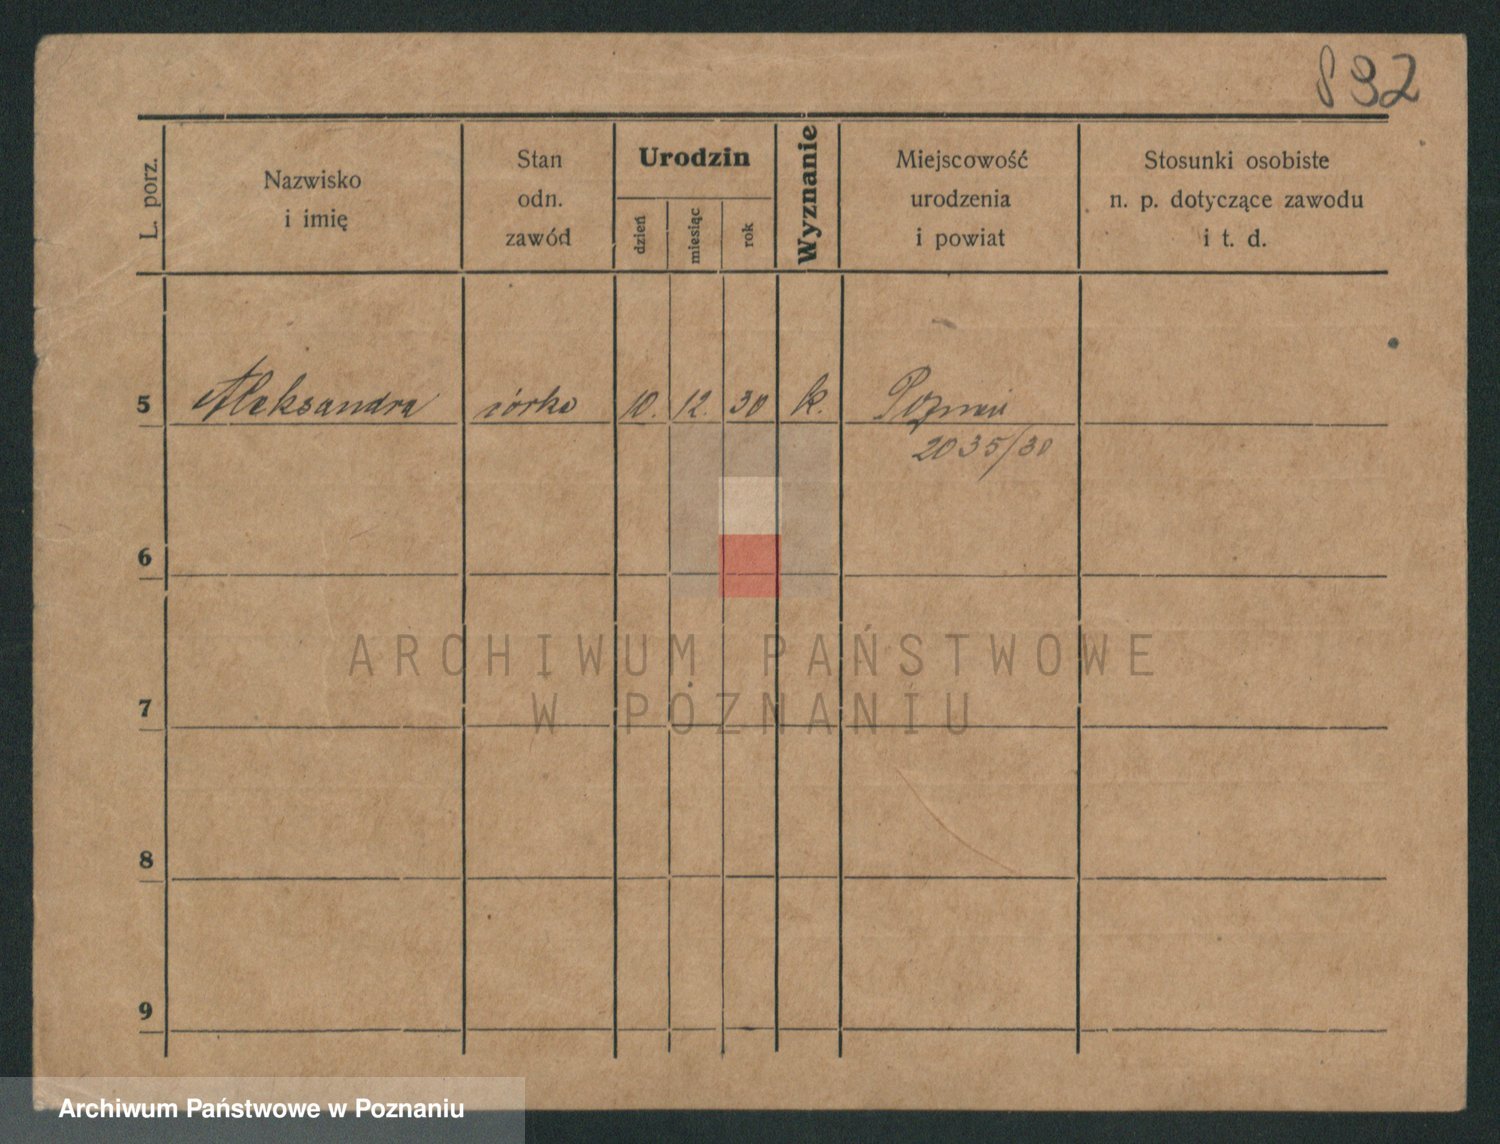 892
L. porz.
Nazwisko
i imię
Stan
odn.
zawód
Urodzin
dzień
miesiąc
rok
Wyznanie
Miejscowość
urodzenia
i powiat
Stosunki osobiste
n. p. dotyczące zawodu
i t. d.
5 Aleksandra córka 10. 12. 30 k. Poznań
2035/30
6
7
8
9
ARCHIWUM PAŃSTWOWE
W POZNANIU
Archiwum Państwowe w Poznaniu